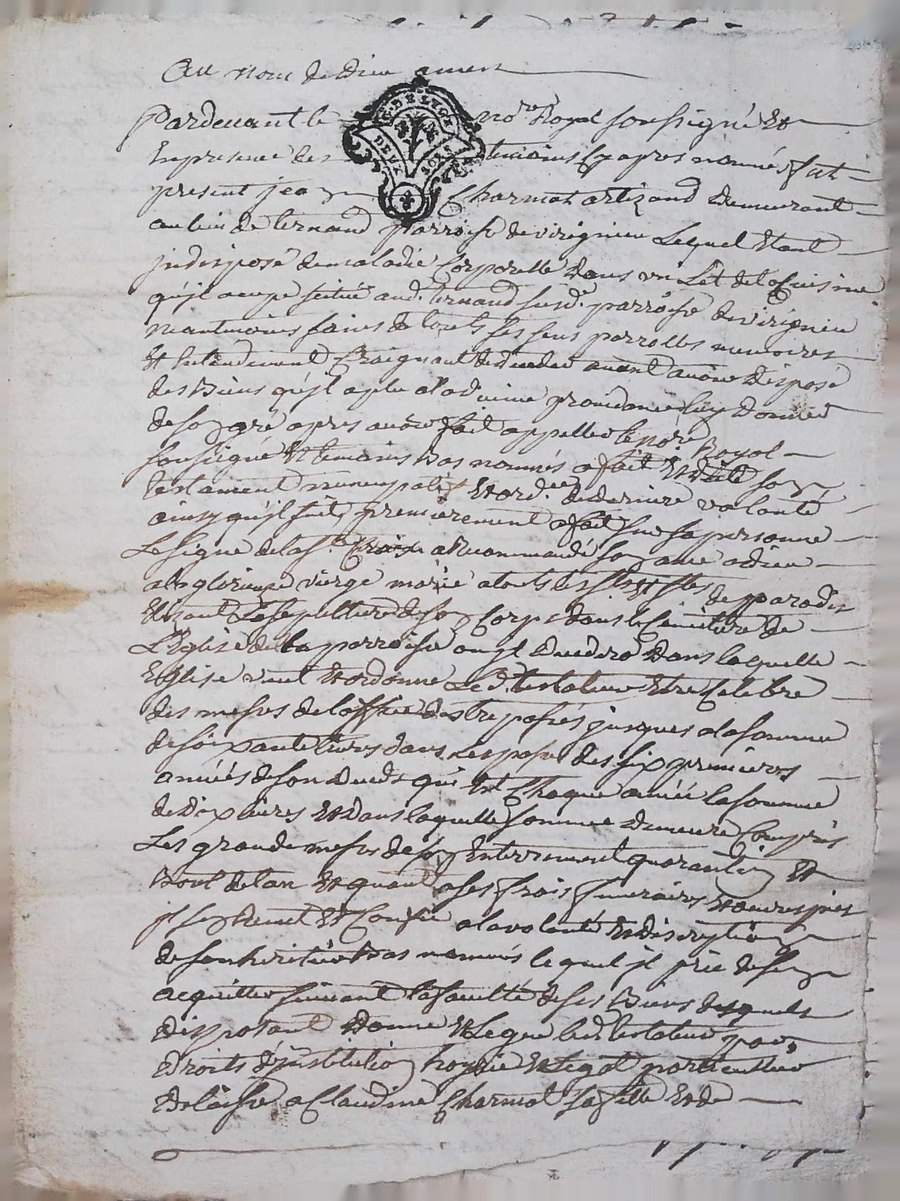 Au nom de Dieu amen
G. DE LYON
DEUX SOLS
Pardevant le no.re Royal soussigné Et
En presence des temoins Cy apres nommés fut
present jean Charmot artizand Demeurant
au lieu de Ternand parroisse de virignieu Lequel Etant
jndisposé de maladie Corporelle Dans un Lit de la Cuisine
qu'jl acupe scitué aud. ternand susd.e parroisse de virignieu
neantmoins sains de touts ses sens parrolles memoires
Et Entendement Craignant de deceder avant avoir Disposé
des Biens qu'jl a plu a la divine providance luy Donner
de son gré apres avoir fait appeller le no.re Royal
soussigné Et temoins Bas nommés a fait Et dicté son
testament nuncupatif Et ord.ce de derniere volonté
ainsy qu'jl suit, premierement a fait sur sa personne
Le signe de la S.te Croix a Recommandé son ame a Dieu
a la glorieuse vierge marie a touts les S.ts Et S.tes de paradis
Elizant La sepulture de son Corps dans le Cimetiere de
L'Eglise de la parroisse ou jl Decedera Dans laquelle
Eglise veut Et ordonne Le d. testateur Etre Celebré
des messes de l'office des trepassés jusques a la somme
de soixante livres dans L'espasse des six premieres
années de son Deceds qui Est Chaque année la somme
de Dix livres Et Dans laquelle somme Demeure Compris
Les grandes messes de son Enterrement quarantin Et
Bout de l'an Et quant a ses frais funeraires Et oeuvres pies
jl s'en Remet Et Confie a la volonté Et discrytion
de son heritier Bas nommé lequel jl prie de s'en
acquitter suivant la faculté de ses Biens desquels
disposant Donne Et Legue led. testateur par
Droits d'jnstitution hoyrie Et legat particullier
Delaisse a Claudine Charmot sa fille Et de